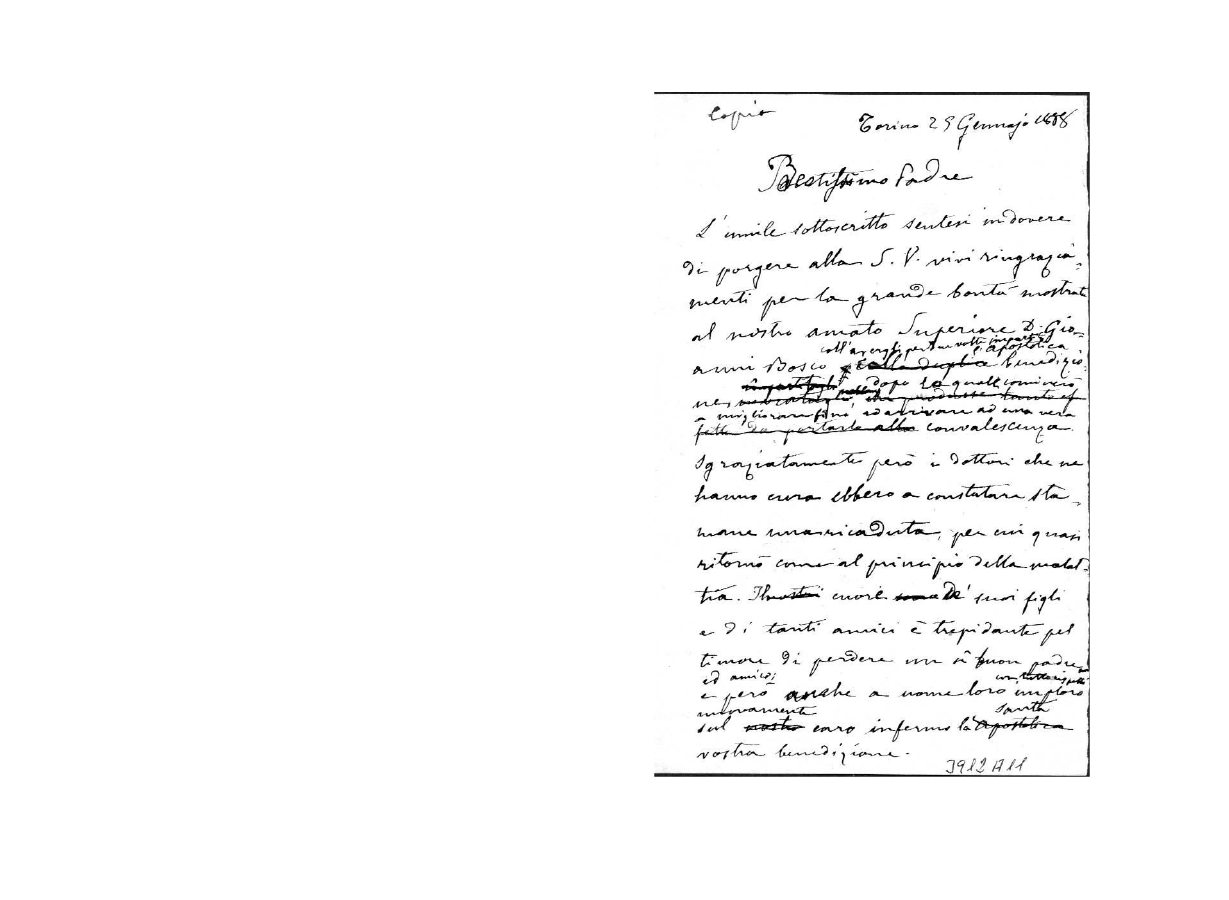 Copia
Torino 29 Gennajo 1888
Beatissimo Padre
L'umile sottoscritto sentesi in dovere
di porgere alla S. V. vivi ringrazia-
menti per la grande bontà mostrata
al nostro amato Superiore D. Gio-
coll'avergli per due volte impartito
l'Apostolica
anni Bosco colla duplice benedizio-
impartitagli dopo la quale cominciò
ne, che produsse tanto ef
a migliorare fino ad arrivare ad una vera
fetto da portarlo alla convalescenza.
Sgraziatamente però i dottori che ne
hanno cura ebbero a constatare sta-
mane una ricaduta, per cui quasi
ritornò come al principio della malat-
tia. Il nostri cuore de' suoi figli
e di tanti amici è trepidante pel
timore di perdere un sì buon padre
ed amico;
e però anche a nome loro imploro
nuovamente santa
sul nostro caro infermo la Apostolica
vostra benedizione.
3912 A11